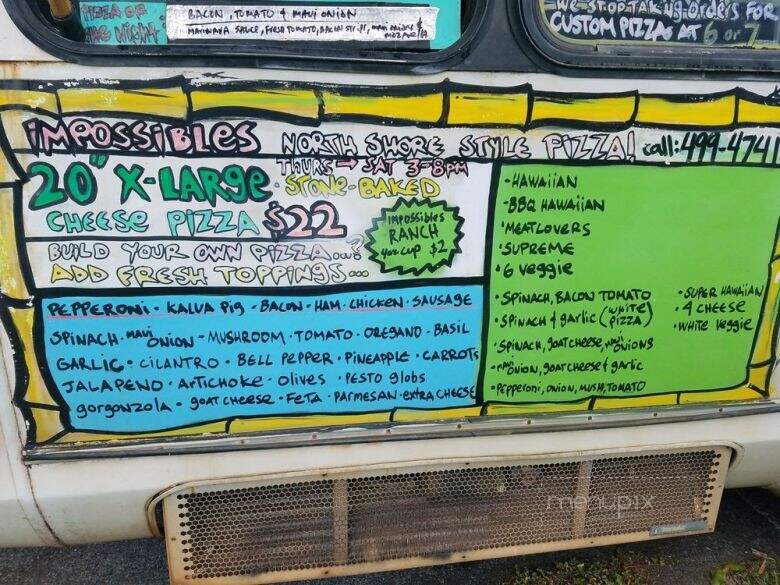 PIZZA OF
THE NIGHT
BACON, TOMATO & MAUI ONION
MARINARA SAUCE, FRESH TOMATO, BACON
MAUI ONIONS &
MOZARELLA
WE STOP TAKING ORDERS FOR
CUSTOM PIZZAS AT 6 or 7
IMPOSSIBLES NORTH SHORE STYLE PIZZA! call: 499-4741
THURS → SAT 3-8PM
20" X-LARGE · STONE-BAKED
CHEESE PIZZA $22
IMPOSSIBLES
RANCH
4oz CUP $2
BUILD YOUR OWN PIZZA...?
ADD FRESH TOPPINGS...
PEPPERONI · KALUA PIG · BACON · HAM · CHICKEN · SAUSAGE
SPINACH · MAUI ONION · MUSHROOM · TOMATO · OREGANO · BASIL
GARLIC · CILANTRO · BELL PEPPER · PINEAPPLE · CARROTS
JALAPENO · ARTICHOKE · OLIVES · PESTO glObs
gorgonzola · goAT CHEESE · FETA · PARMESAN · EXTRA CHEESE
· HAWAIIAN
· BBQ HAWAIIAN
· MEATLOVERS
· SUPREME
· 6 VEGGIE
· SPINACH, BACON TOMATO
· SPINACH & GARLIC (WHITE PIZZA)
· SPINACH, GOAT CHEESE, MAUI ONIONS
· MAUI ONION, GOAT CHEESE & GARLIC
· PEPPERONI, ONION, MUSH, TOMATO
· SUPER HAWAIIAN
· 4 CHEESE
· WHITE VEGGIE
menupix